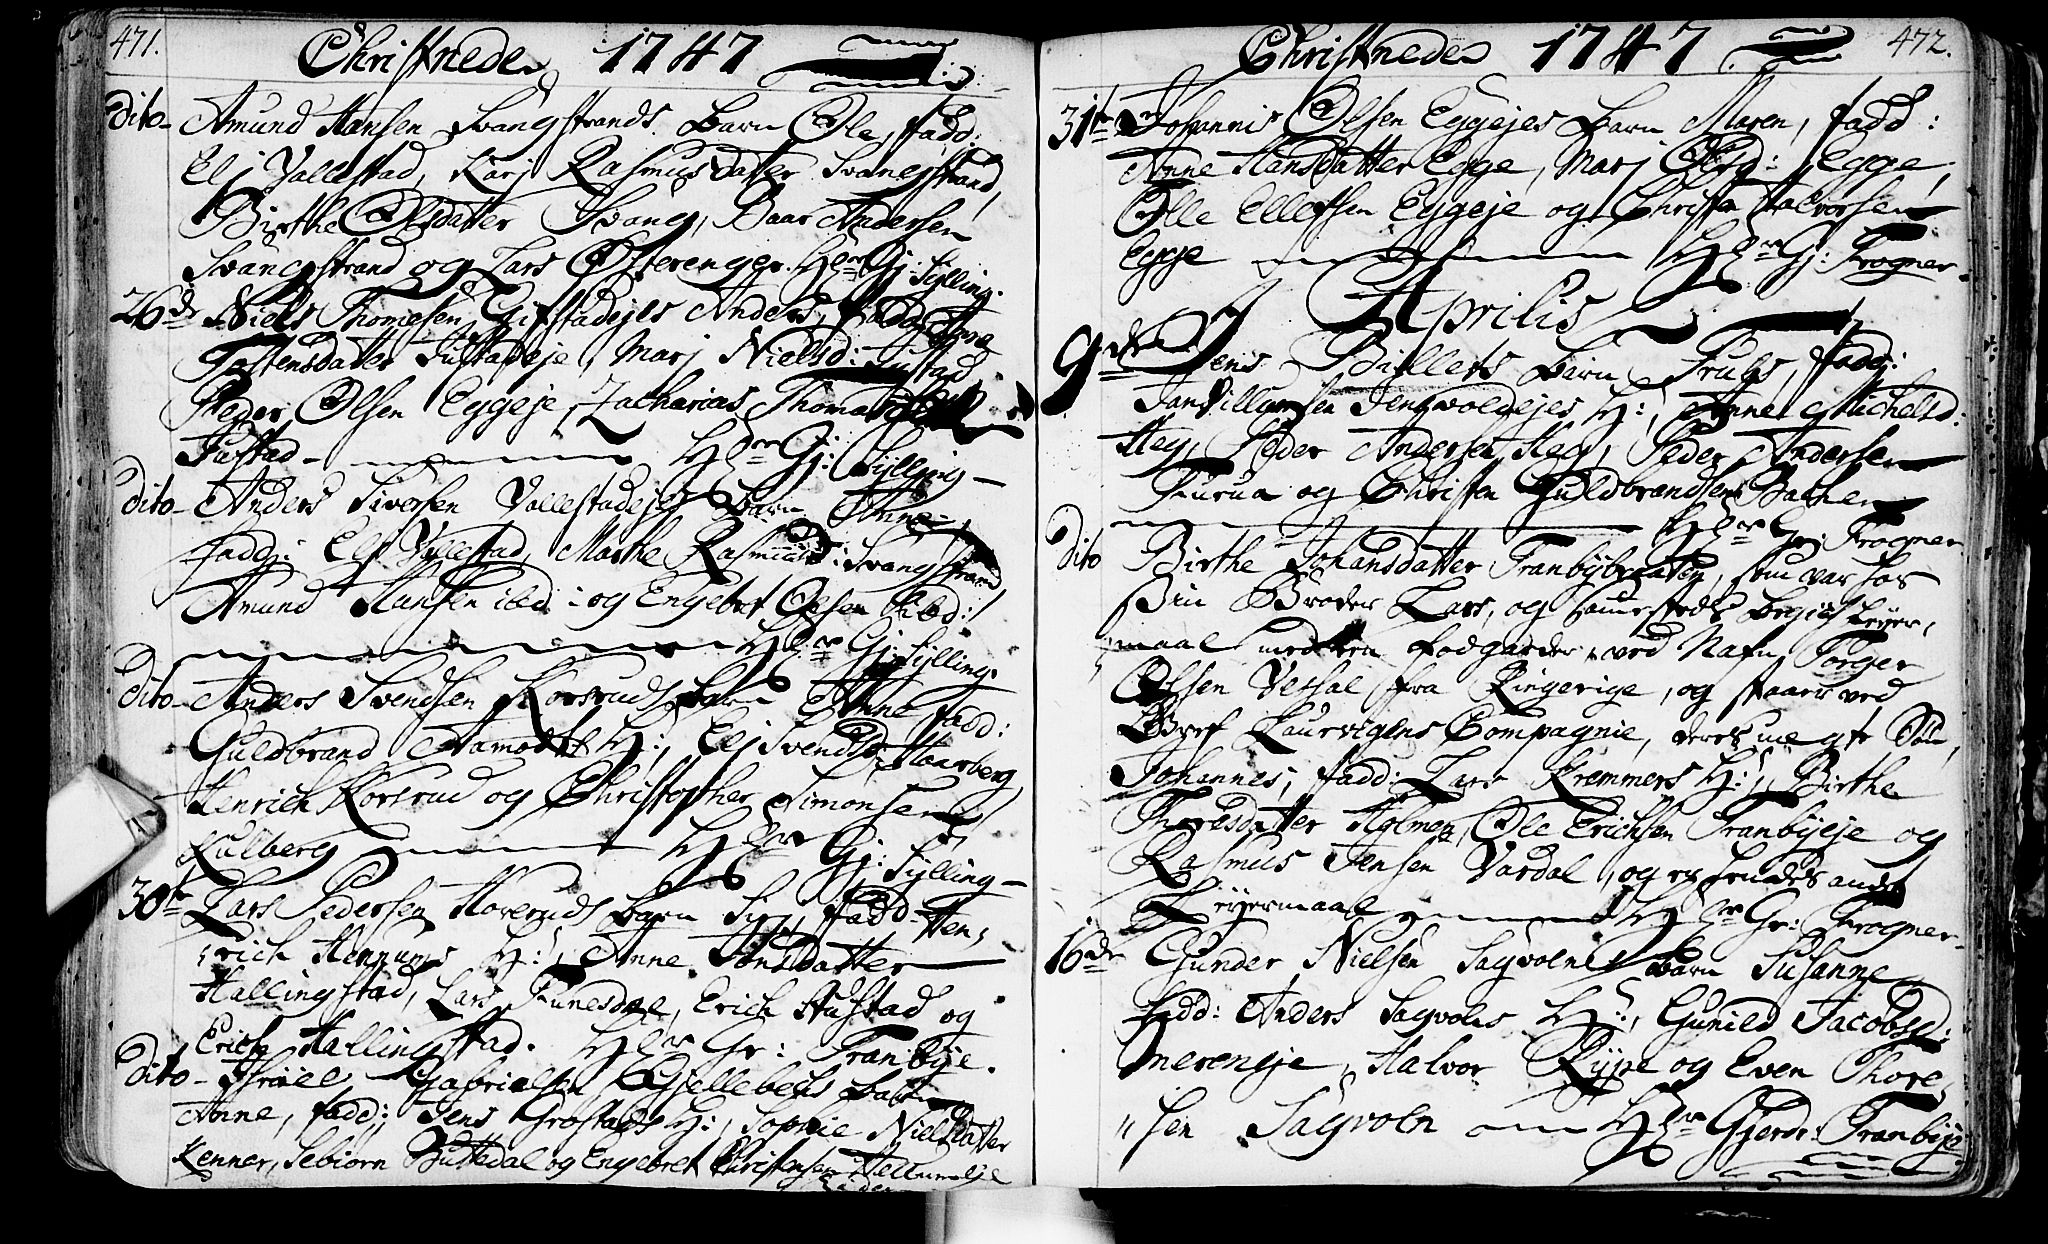 471.
Christnede 1747
dito- Amund Hansen Svangstrands Barn Ole, fadd:
Eli Vallestad, Kari Rasmusdatter Svangstrand,
Birthe Olsdatter Svang, Baar Andersen
Svangstrand og Lars Østerenger. Hr Gj: Sylling.
26de Niels Thomesen Gifstadejes Anders, fadd:
Tostensdatter Tustadeje, Marj Nielsd: Tustad
Peder Olsen Eggeje, Zacharias Thomas
Tustad - Hr Gj: Sylling -
dito- Anders Siversen Vallestadejes Barn Anne,
fadd: Eli Vallestad, Marthe Rasmusd: Svangstrand
Amund Hansen ibd: og Engebret Olsen ibd:
Hr Gj: Sylling.
Dito- Anders Svendsen Korsruds Barn Anne, fadd:
Guldbrand H:, Eli Svendsd: Haarberg,
Henrich Korsrud og Christopher Simonsen
Kulberg Hr Gj: Sylling -
30te Lars Pedersen Hoveruds Barn Siri, fadd: Hen,
,,rich Hennums H:, Anne Jonsdatter
Hallingstad, Lars Funesdal, Erich Hustad og
Erich Hallingstad. Hr Gr: Tranbye.
dito- Israel Gabrielsen Gjellebechs Barn
Anne, fadd: Jens Grostads H:, Sophie Nielsdatter
Kenner, Sebiørn Buttedal og Engebret Christensen Hellumeje
472.
Christnede 1747
31te Johannis Olsen Eggejes Barn Maren, fadd:
Anne Hansdatter Egge, Marj Olsd: Egge,
Olle Ellefsen Eggeje og Christen Halvorsen
Egge Hr Gj: Frogner.
Aprilis
9de Jens Billerts Barn Truls, fadd:
Jan Villumsen Jengvoldejes H:, Anne Michelsd:
Heg, Peder Andersen Heg, Peder Andersen
Furua og Christen Guldbrandsen
Hr Gr: Frogner
Dito Birthe Johansdatter Tranbybraaten, som var hos
Sin Broder Lars, og sammesteds begich Leyer,
maal med en fodgarder, ved Nafn Torger
Olsen Vesal, fra Ringerige, og staaer ved
Gref Laurvigens Compagnie, deres uægte Søn,
Johannes, fadd: Lars Kremmers H:, Birthe
Thoresdatter Holmen, Ole Erichsen Tranbyeje og
Rasmus Jensen Vardal, og er hendes andet
Leyermaal Hr Gr: Frogner-
16de Gunder Nielsen Sagvolns Barn Susanne,
fadd: Anders Sagvolns H:, Gunild Jacobsd:
Mereneje, Halvor Rype og Even Thore,
,,sen Sagvoln Hr Gjerdr: Tranbye.